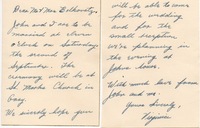 Dear Mr & Mrs Balhouty:
John and I are to be
married at eleven
o'clock on Saturday
the second of
September. The
ceremony will be at
St Marks Church in
We sincerely hope you
will be able to come
for the wedding
and for the
small reception
we're planning in
the evening at
John's
With much love from
John and me.
Yours lovingly,
Virginia